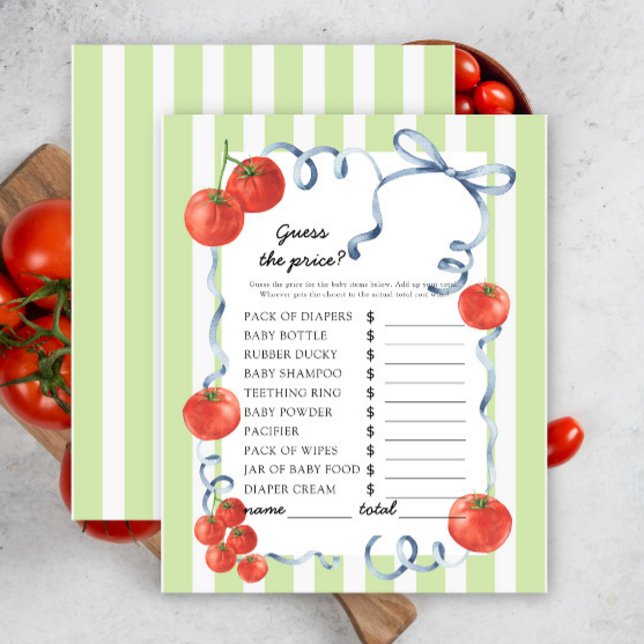 Guess
the price?
Guess the price for the baby items below. Add up your total.
Whoever gets the closest to the actual total cost wins!
PACK OF DIAPERS $
BABY BOTTLE $
RUBBER DUCKY $
BABY SHAMPOO $
TEETHING RING $
BABY POWDER $
PACIFIER $
PACK OF WIPES $
JAR OF BABY FOOD $
DIAPER CREAM $
name total